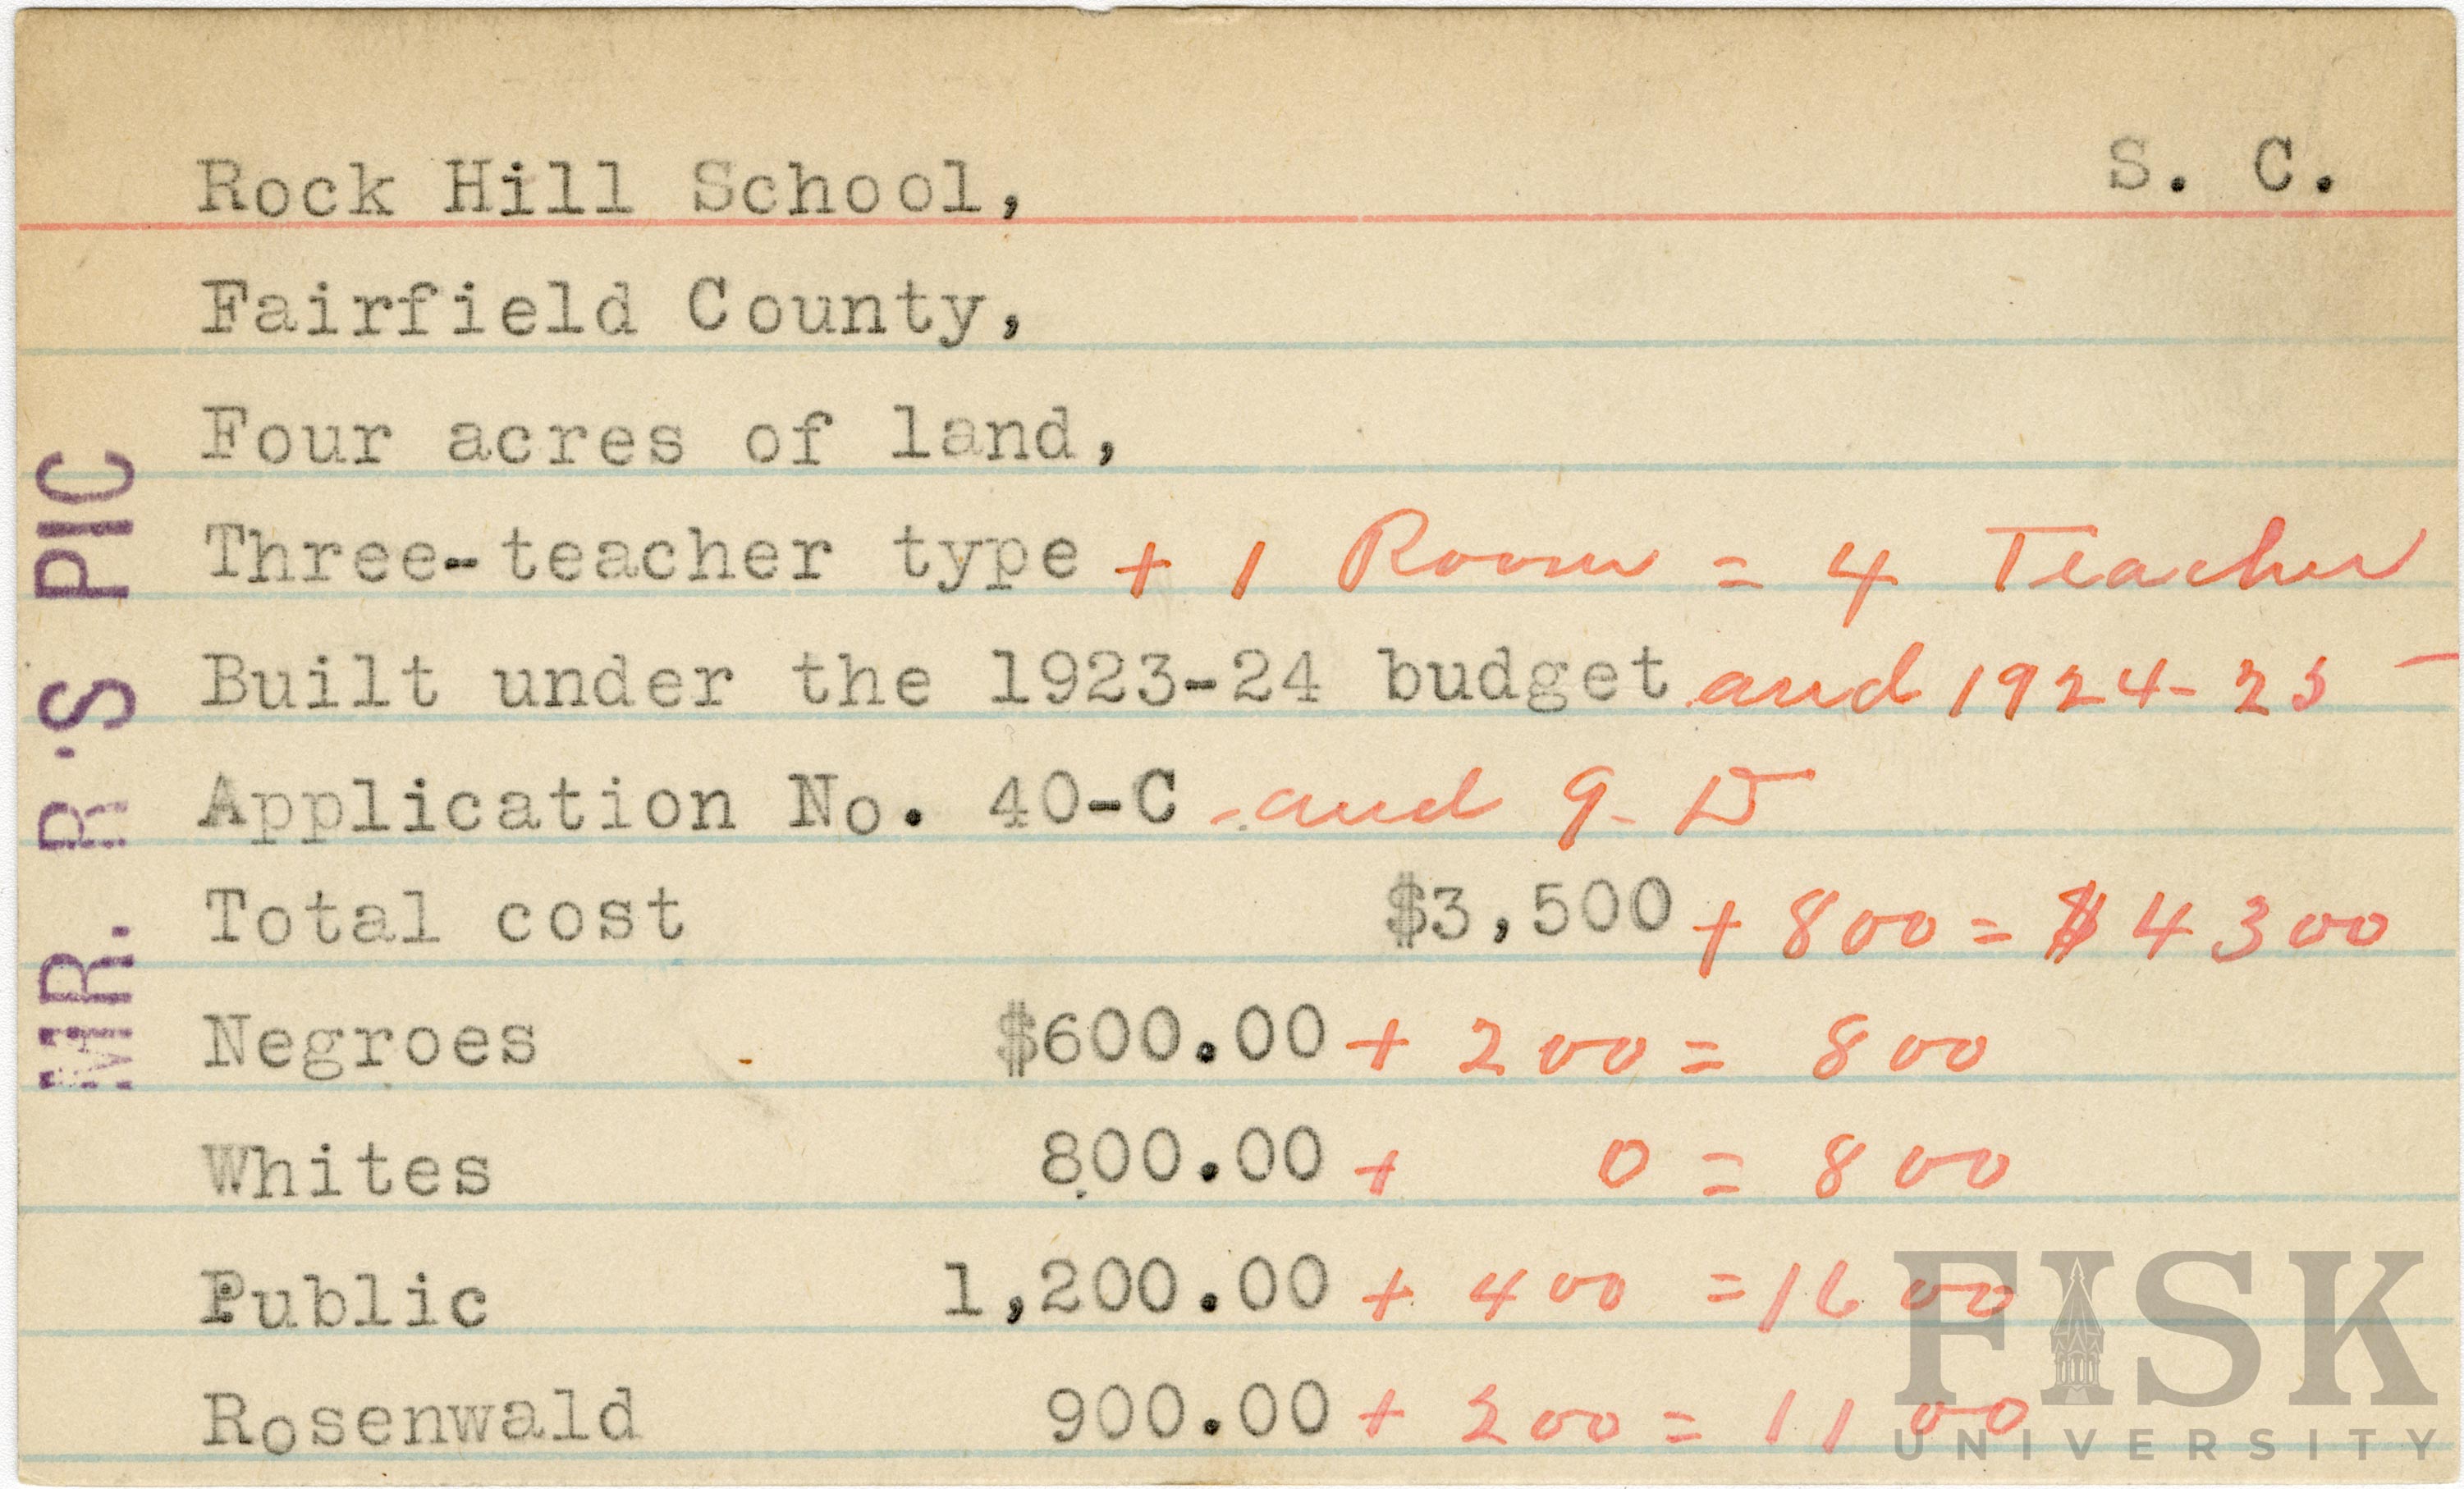 Rock Hill School, S. C.
Fairfield County,
Four acres of land,
Three-teacher type + 1 Room = 4 Teacher
Built under the 1923-24 budget and 1924-25
Application No. 40-C - and 9-D
Total cost $3,500 + 800 = $4300
Negroes $600.00 + 200 = 800
Whites 800.00 + 0 = 800
Public 1,200.00 + 400 = 1600
Rosenwald 900.00 + 200 = 1100
MR. R'S PIC
FISK
UNIVERSITY